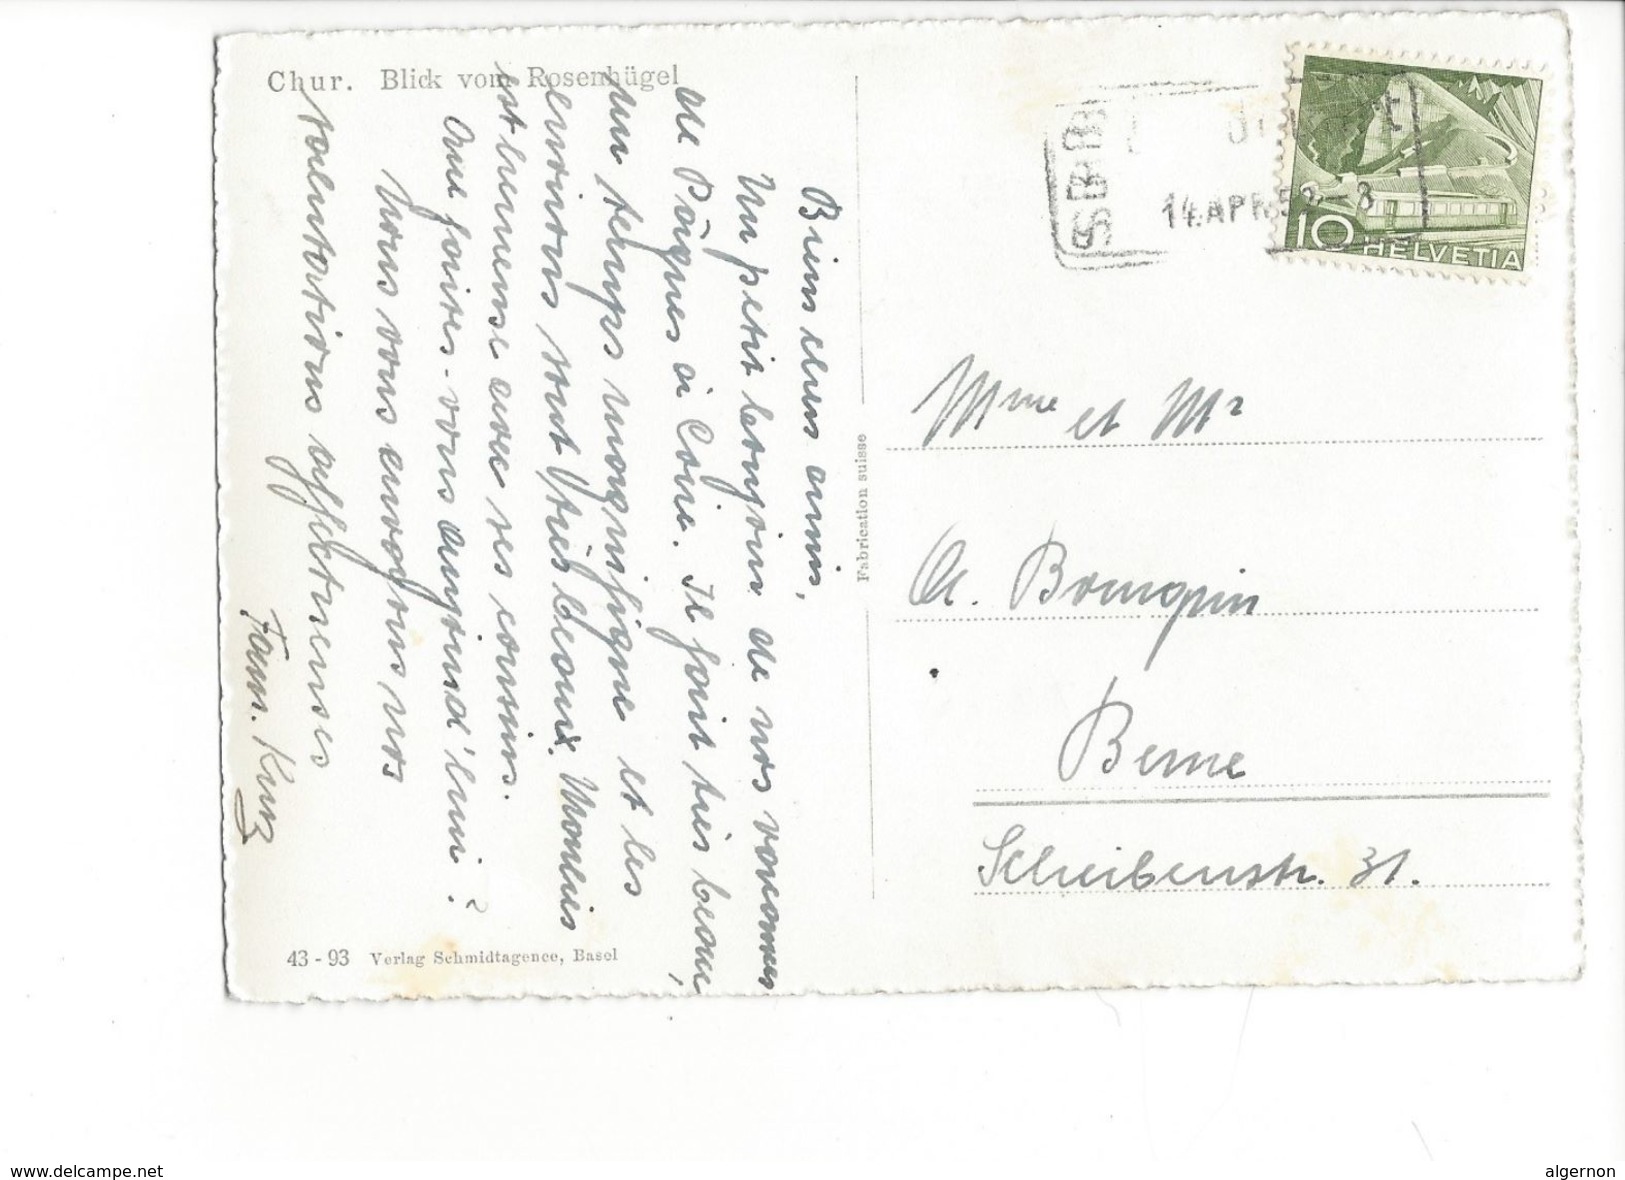 Chur. Blick vom Rosenhügel
Biens chers amis,
Un petit bonjour de nos vacances
de Pâques à Coire. Il fait très beau,
un temps magnifique et les
environs sont très beaux. Monuis
est heureuse avec ses cousins.
Que faites-vous aujourd'hui ?
Nous vous envoyons nos
salutations affectueuses
Fam. Kunz
43 - 93 Verlag Schmidtagence, Basel
Fabrication suisse
SBB
14.APR.5 - 8
10 HELVETIA
Mme et Mr
A. Bourquin
Berne
Scheibenstr. 31.
www.delcampe.net
algernon